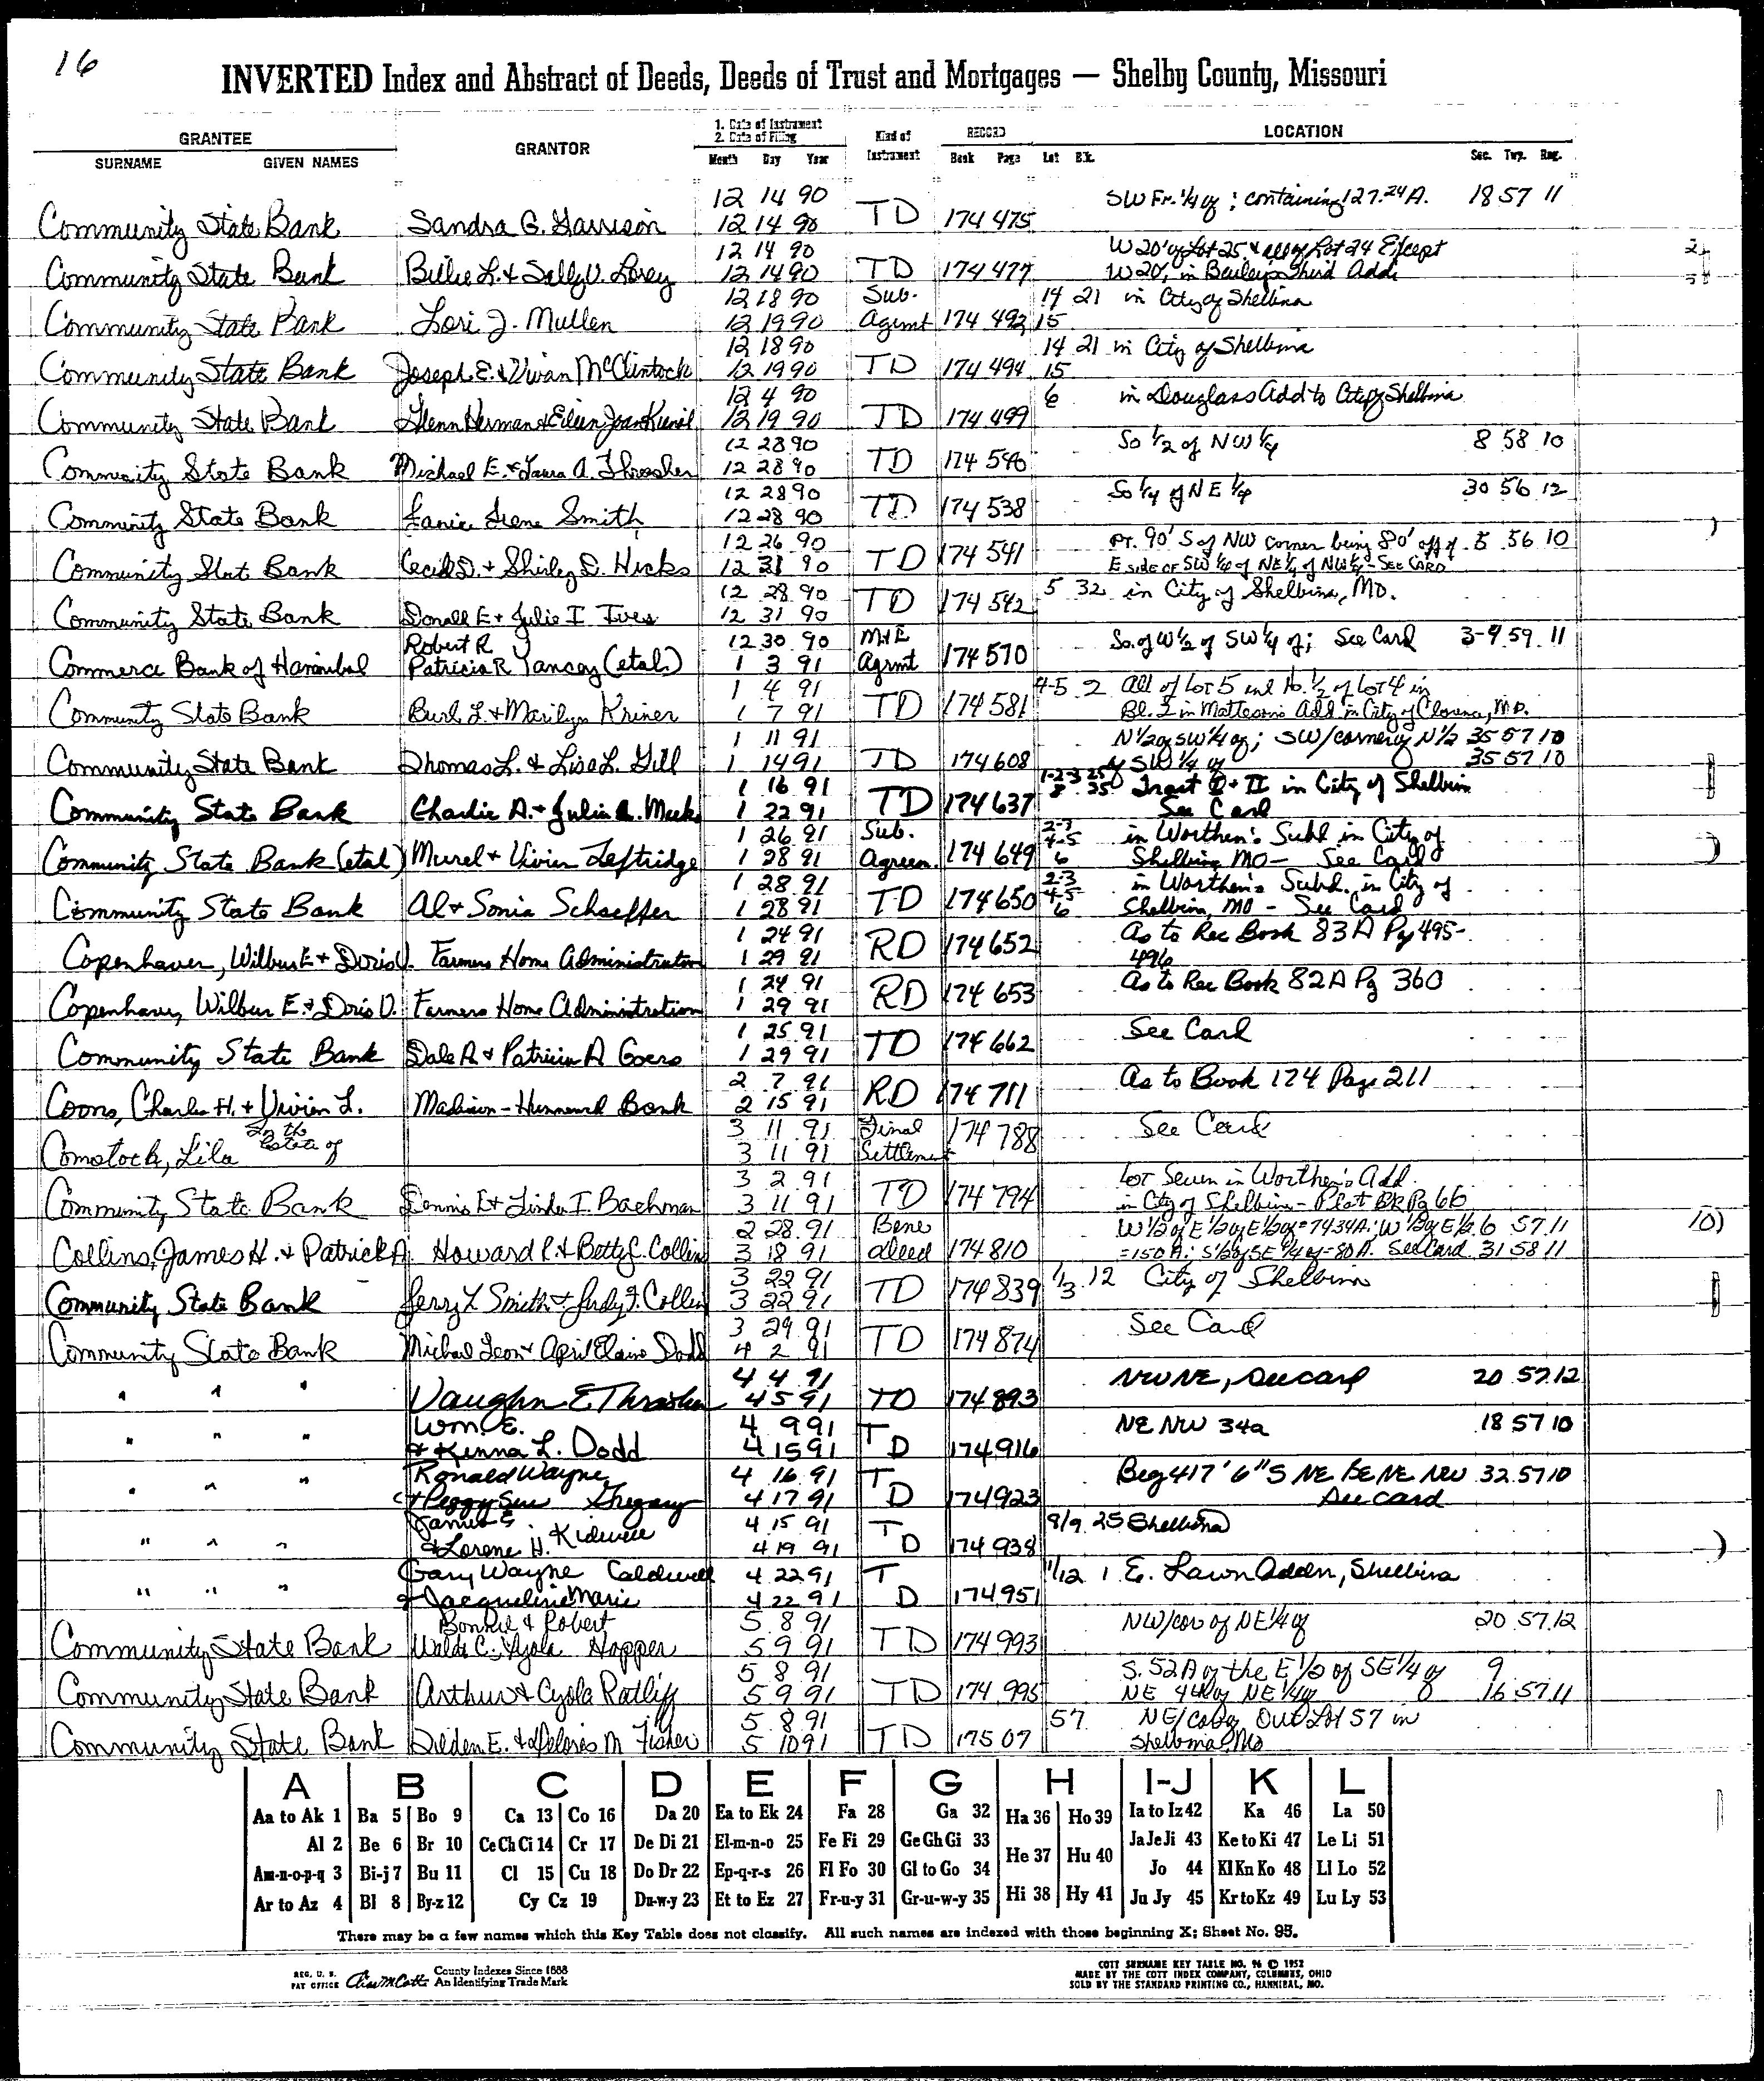 16
INVERTED Index and Abstract of Deeds, Deeds of Trust and Mortgages — Shelby County, Missouri
GRANTEE GRANTOR 1. Date of Instrument 2. Date of Filing Kind of Instrument RECORD LOCATION
SURNAME GIVEN NAMES Month Day Year Book Page Lot Blk. Sec. Twp. Rng.
12 14 90 SW Fr. 1/4 of; containing 127.24 A. 18 57 11
Community State Bank Sandra G. Garrison 12 14 90 TD 174 475
12 14 90 W 20' of Lot 25 & all of Lot 24 Except
Community State Bank Billie L. & Sally V. Lorey 12 14 90 TD 174 477 W 20', in Bailey's Third Add.
12 18 90 Sub. 14 21 in City of Shelbina
Community State Bank Lori J. Mullen 12 19 90 Agmt 174 492 15
12 18 90 14 21 in City of Shelbina
Community State Bank Joseph E. & Vivian McClintock 12 19 90 TD 174 494 15
12 4 90 6 in Douglass Add to City of Shelbina
Community State Bank Glenn Herman & Eileen Joan 12 19 90 TD 174 499
12 28 90 So 1/2 of NW 1/4 8 58 10
Community State Bank Michael E. & Laura A. Thrasher 12 28 90 TD 174
12 28 90 So 1/4 of NE 1/4 30 56 12
Community State Bank Janie Irene Smith 12 28 90 TD 174 538
12 26 90 Pt. 90' S of NW corner being 80' off of 5 56 10
Community State Bank Cecil D. & Shirley D. Hicks 12 31 90 TD 174 541 E SIDE OF SW 1/4 of NE 1/4 of NW 1/4 - SEE CARD
12 28 90 5 32 in City of Shelbina, MO.
Community State Bank Donald E & Julie I Ives 12 31 90 TD 174 542
Robert R 12 30 90 So. of W 1/2 of SW 1/4 of; See Card 3-9 59 11
Commerce Bank of Hannibal Patricia R Yancey (etal) 1 3 91 Agrmt 174 570
1 4 91 4-5 2 All of Lot 5 and No. 1/2 of Lot 4 in
Community State Bank Burl L. & Marilyn Kriner 1 7 91 TD 174 581 Bl. 2 in Matteson's Add in City of Clarence, MO.
1 11 91 N 1/2 of SW 1/4 of; SW/corner of N 1/2 35 57 10
Community State Bank Thomas L. & Lisa L. Gill 1 14 91 TD 174 608 of SW 1/4 of 35 57 10
1 16 91 1-2-3 25 Tract I + II in City of Shelbina
Community State Bank Charlie A. & Julia A. Meeks 1 22 91 TD 174 637 8 35 See Card
1 26 91 Sub. 2-3 in Worthen's Subd in City of
Community State Bank (etal) Murel & Vivian Leftridge 1 28 91 Agreem. 174 649 4-5 6 Shelbina MO - See Card
1 28 91 2-3 in Worthen's Subd. in City of
Community State Bank Al & Sonia Schaeffer 1 28 91 TD 174 650 4-5 6 Shelbina, MO - See Card
1 24 91 As to Rec Book 83A Pg 495-
Copenhaver, Wilbur E & Doris V. Farmers Home Administration 1 29 91 RD 174 652 496
1 24 91 As to Rec Book 82A Pg 360
Copenhaver, Wilbur E. & Doris V. Farmers Home Administration 1 29 91 RD 174 653
1 25 91 See Card
Community State Bank Dale A & Patricia A Goers 1 29 91 TD 174 662
2 7 91 As to Book 174 Page 211
Coons, Charles H. & Vivian L. Madison-Hunnewell Bank 2 15 91 RD 174 711
In the 3 11 91 Final See Card
Comstock, Lila Estate of 3 11 91 Settlement 174 788
3 2 91 Lot Seven in Worthen's Add.
Community State Bank Dennis E & Linda I. Bachman 3 11 91 TD 174 794 in City of Shelbina - Plat Bk Pg 66
2 28 91 Bene W 1/2 of E 1/2 of E 1/2 of = 74.34A; W 1/2 of E 1/2 6 57 11
Collins, James H. & Patrick A. Howard R. & Betty C. Collins 3 18 91 deed 174 810 = 150 A; S 1/2 of SE 1/4 of = 80 A. See Card 31 58 11
3 22 91 1/3 12 City of Shelbina
Community State Bank Jerry L Smith & Judy J. Collins 3 22 91 TD 174 839
3 29 91 See Card
Community State Bank Michael Leon & April Elaine Dodd 4 2 91 TD 174 874
4 4 91 NW NE, See card 20 57 12
" " " Vaughn E Thrasher 4 5 91 TD 174 893
Wm. E. 4 9 91 T NE NW 34a 18 57 10
" " " & Kenna L. Dodd 4 15 91 D 174 916
Ronald Wayne 4 16 91 T Beg 417' 6" S NE NE NW 32 57 10
" " " & Peggy Sue Gregory 4 17 91 D 174 923 See card
James E. 4 15 91 T 8/9 25 Shelbina
" " " & Lorene H. Kidwell 4 19 91 D 174 938
Gary Wayne Caldwell 4 22 91 T 11/12 1 E. Lawn Addn, Shelbina
" " " & Jacqueline Marie 4 22 91 D 174 951
& Robert 5 8 91 NW/cor of NE 1/4 of 20 57 12
Community State Bank Hopper 5 9 91 TD 174 993
5 8 91 S. 52 A of the E 1/2 of SE 1/4 of 9
Community State Bank Arthur & Cyola Ratliff 5 9 91 TD 174 995 NE 4th of NE 1/4 of 16 57 11
5 8 91 57 NE/co of Out Lot 57 in
Community State Bank Dilden E. & Delores M Fisher 5 10 91 TD 175 07 Shelbina, Mo
A B C D E F G H I-J K L
Aa to Ak 1 Ba 5 Bo 9 Ca 13 Co 16 Da 20 Ea to Ek 24 Fa 28 Ga 32 Ha 36 Ho 39 Ia to Iz 42 Ka 46 La 50
Al 2 Be 6 Br 10 Ce Ch Ci 14 Cr 17 De Di 21 El-m-n-o 25 Fe Fi 29 Ge Gh Gi 33 He 37 Hu 40 Ja Je Ji 43 Ke to Ki 47 Le Li 51
Am-n-o-p-q 3 Bi-j 7 Bu 11 Cl 15 Cu 18 Do Dr 22 Ep-q-r-s 26 Fl Fo 30 Gl to Go 34 Jo 44 Kl Kn Ko 48 Ll Lo 52
Ar to Az 4 Bl 8 By-z 12 Cy Cz 19 Du-w-y 23 Et to Ez 27 Fr-u-y 31 Gr-u-w-y 35 Hi 38 Hy 41 Ju Jy 45 Kr to Kz 49 Lu Ly 53
There may be a few names which this Key Table does not classify. All such names are indexed with those beginning X; Sheet No. 95.
REG. U. S. PAT OFFICE County Indexes Since 1888 An Identifying Trade Mark
COTT SURNAME KEY TABLE NO. 96 © 1952
MADE BY THE COTT INDEX COMPANY, COLUMBUS, OHIO
SOLD BY THE STANDARD PRINTING CO., HANNIBAL, MO.